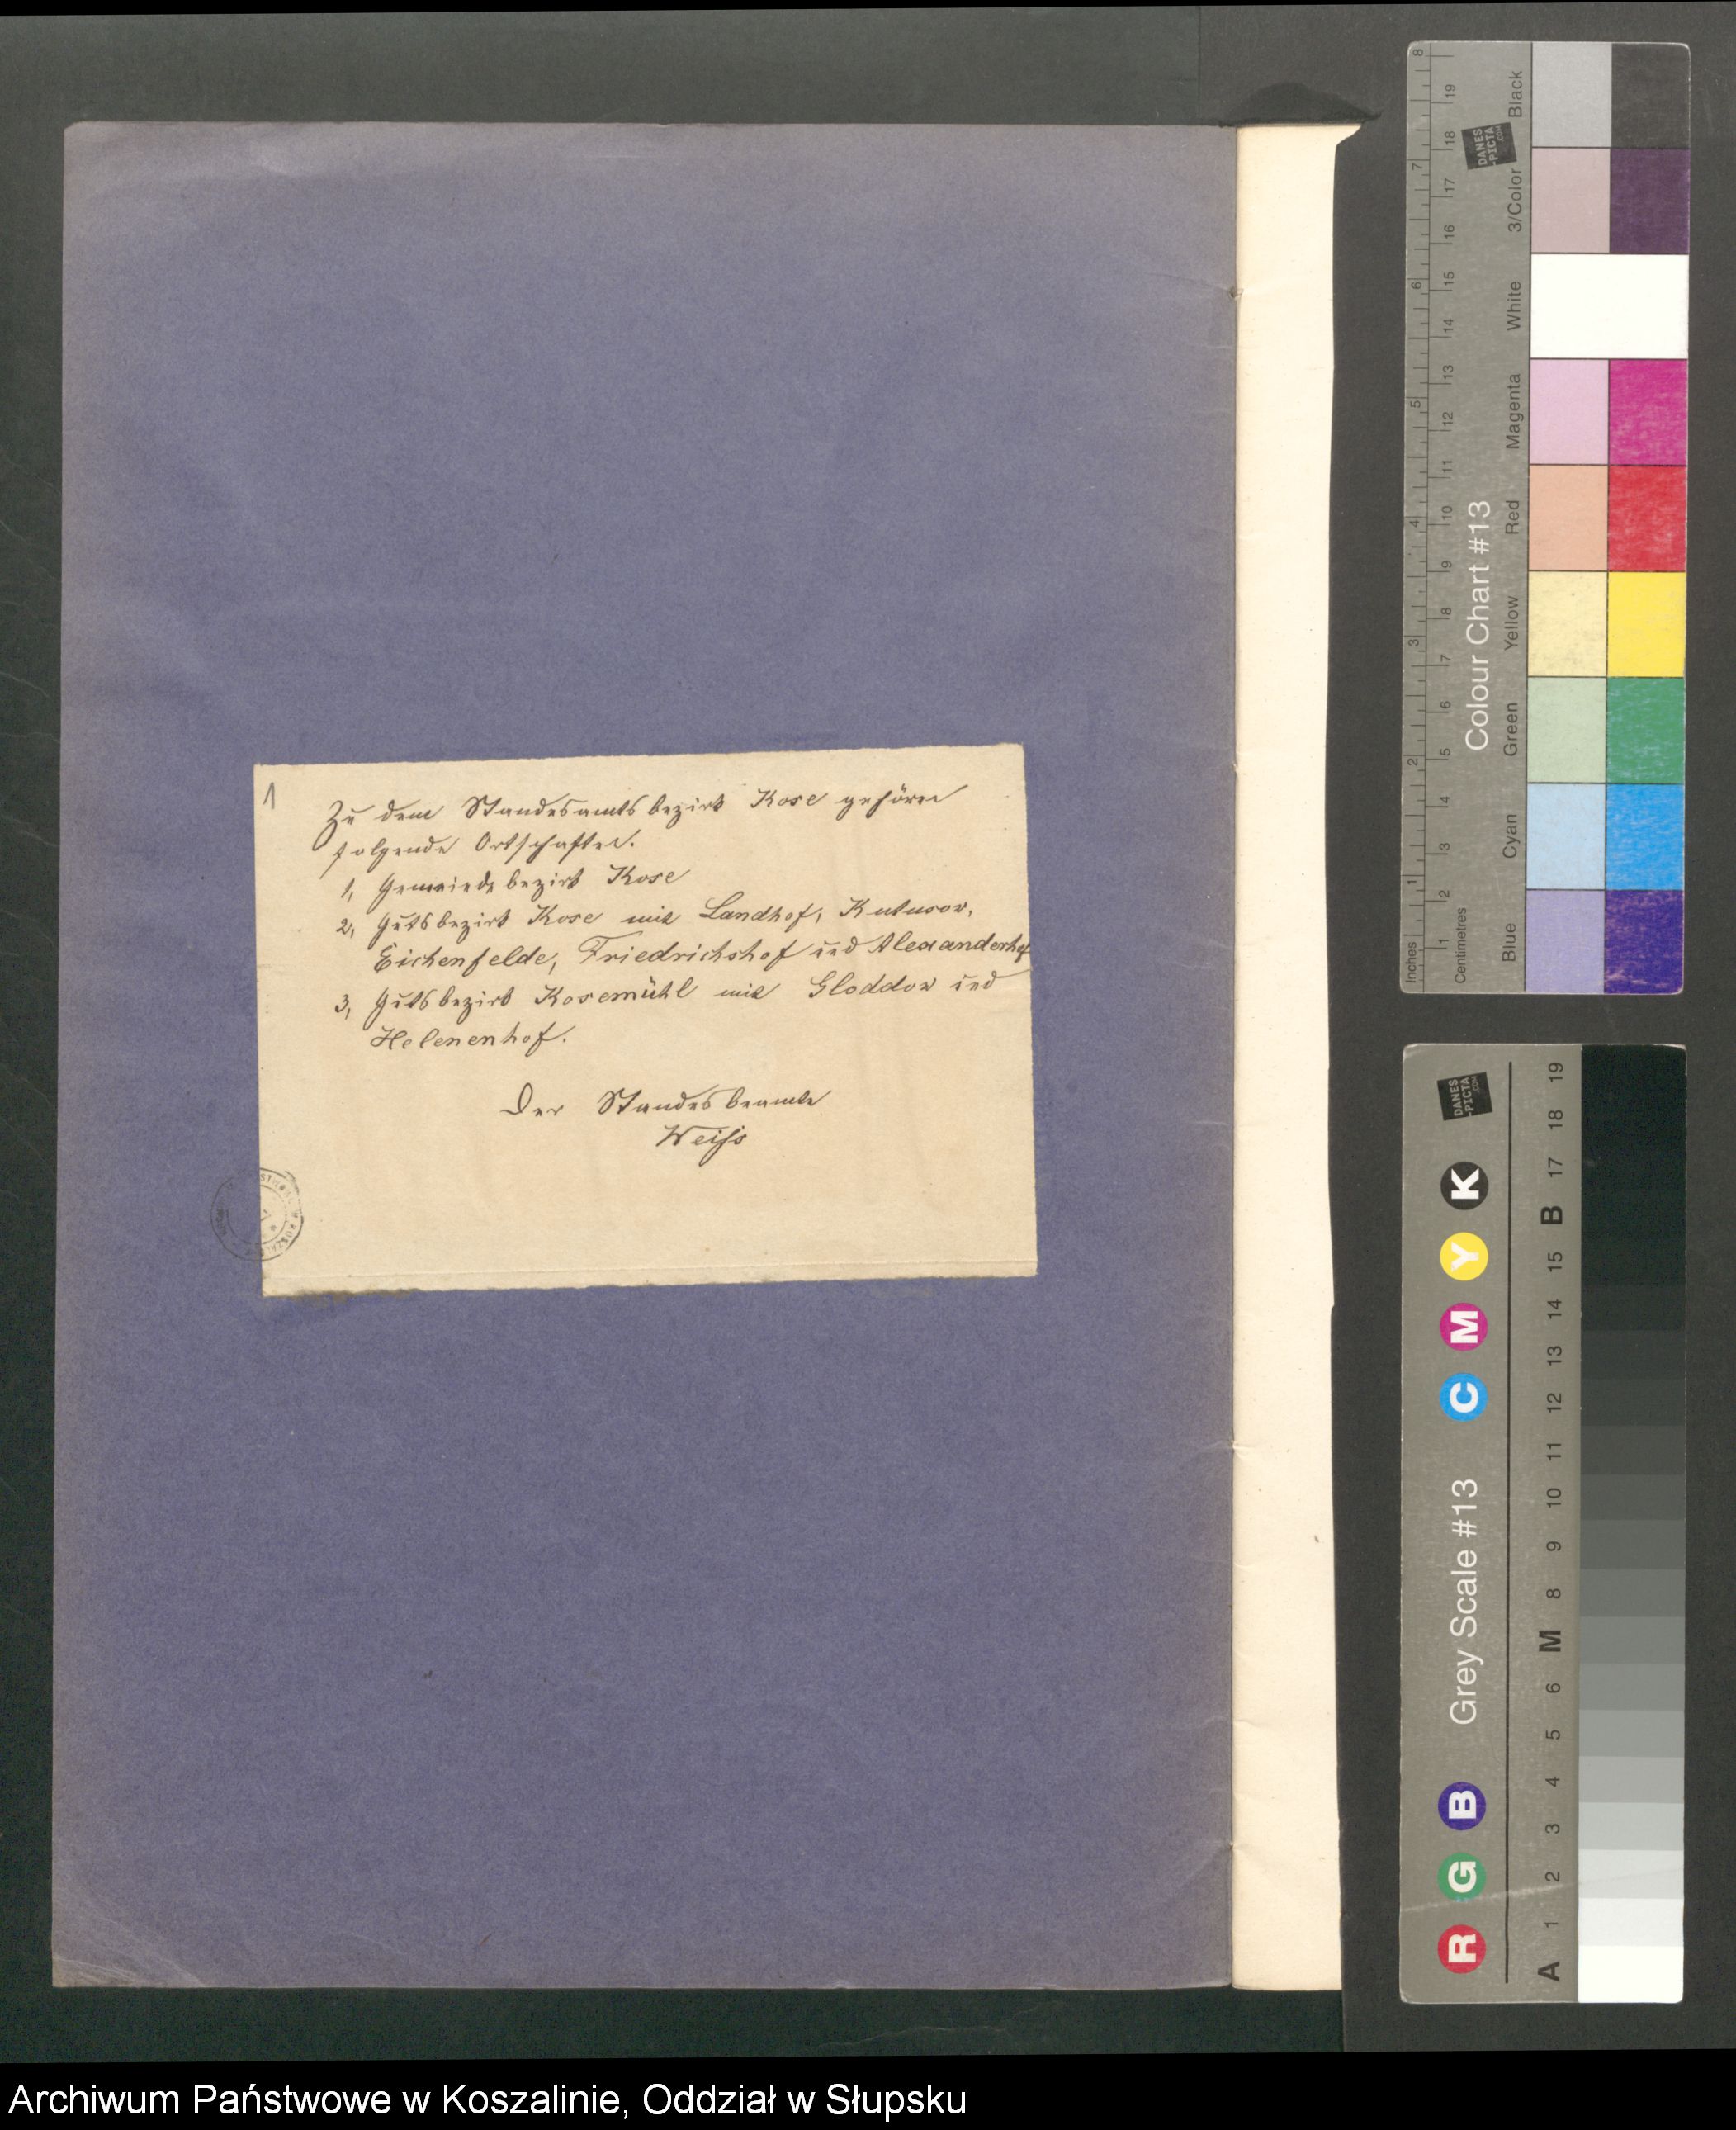 1
Zu dem Standesamtsbezirk Kose gehören
folgende Ortschaften.
1, Gemeindebezirk Kose
2, Gutsbezirk Kose mit Landhof, Kutusow,
Eichenfelde, Friedrichshof und Alexanderhof
3, Gutsbezirk Kosemühl mit Gloddow und
Helenenhof.
Der Standesbeamte
Weiss
Inches 1 2 3 4 5 6 7 8
Centimetres 1 2 3 4 5 6 7 8 9 10 11 12 13 14 15 16 17 18 19
DANES
-PICTA
.COM
Colour Chart #13
Blue Cyan Green Yellow Red Magenta White 3/Color Black
DANES
-PICTA
.COM
R G B Grey Scale #13 C M Y K
A 1 2 3 4 5 6 M 8 9 10 11 12 13 14 15 B 17 18 19
Archiwum Państwowe w Koszalinie, Oddział w Słupsku